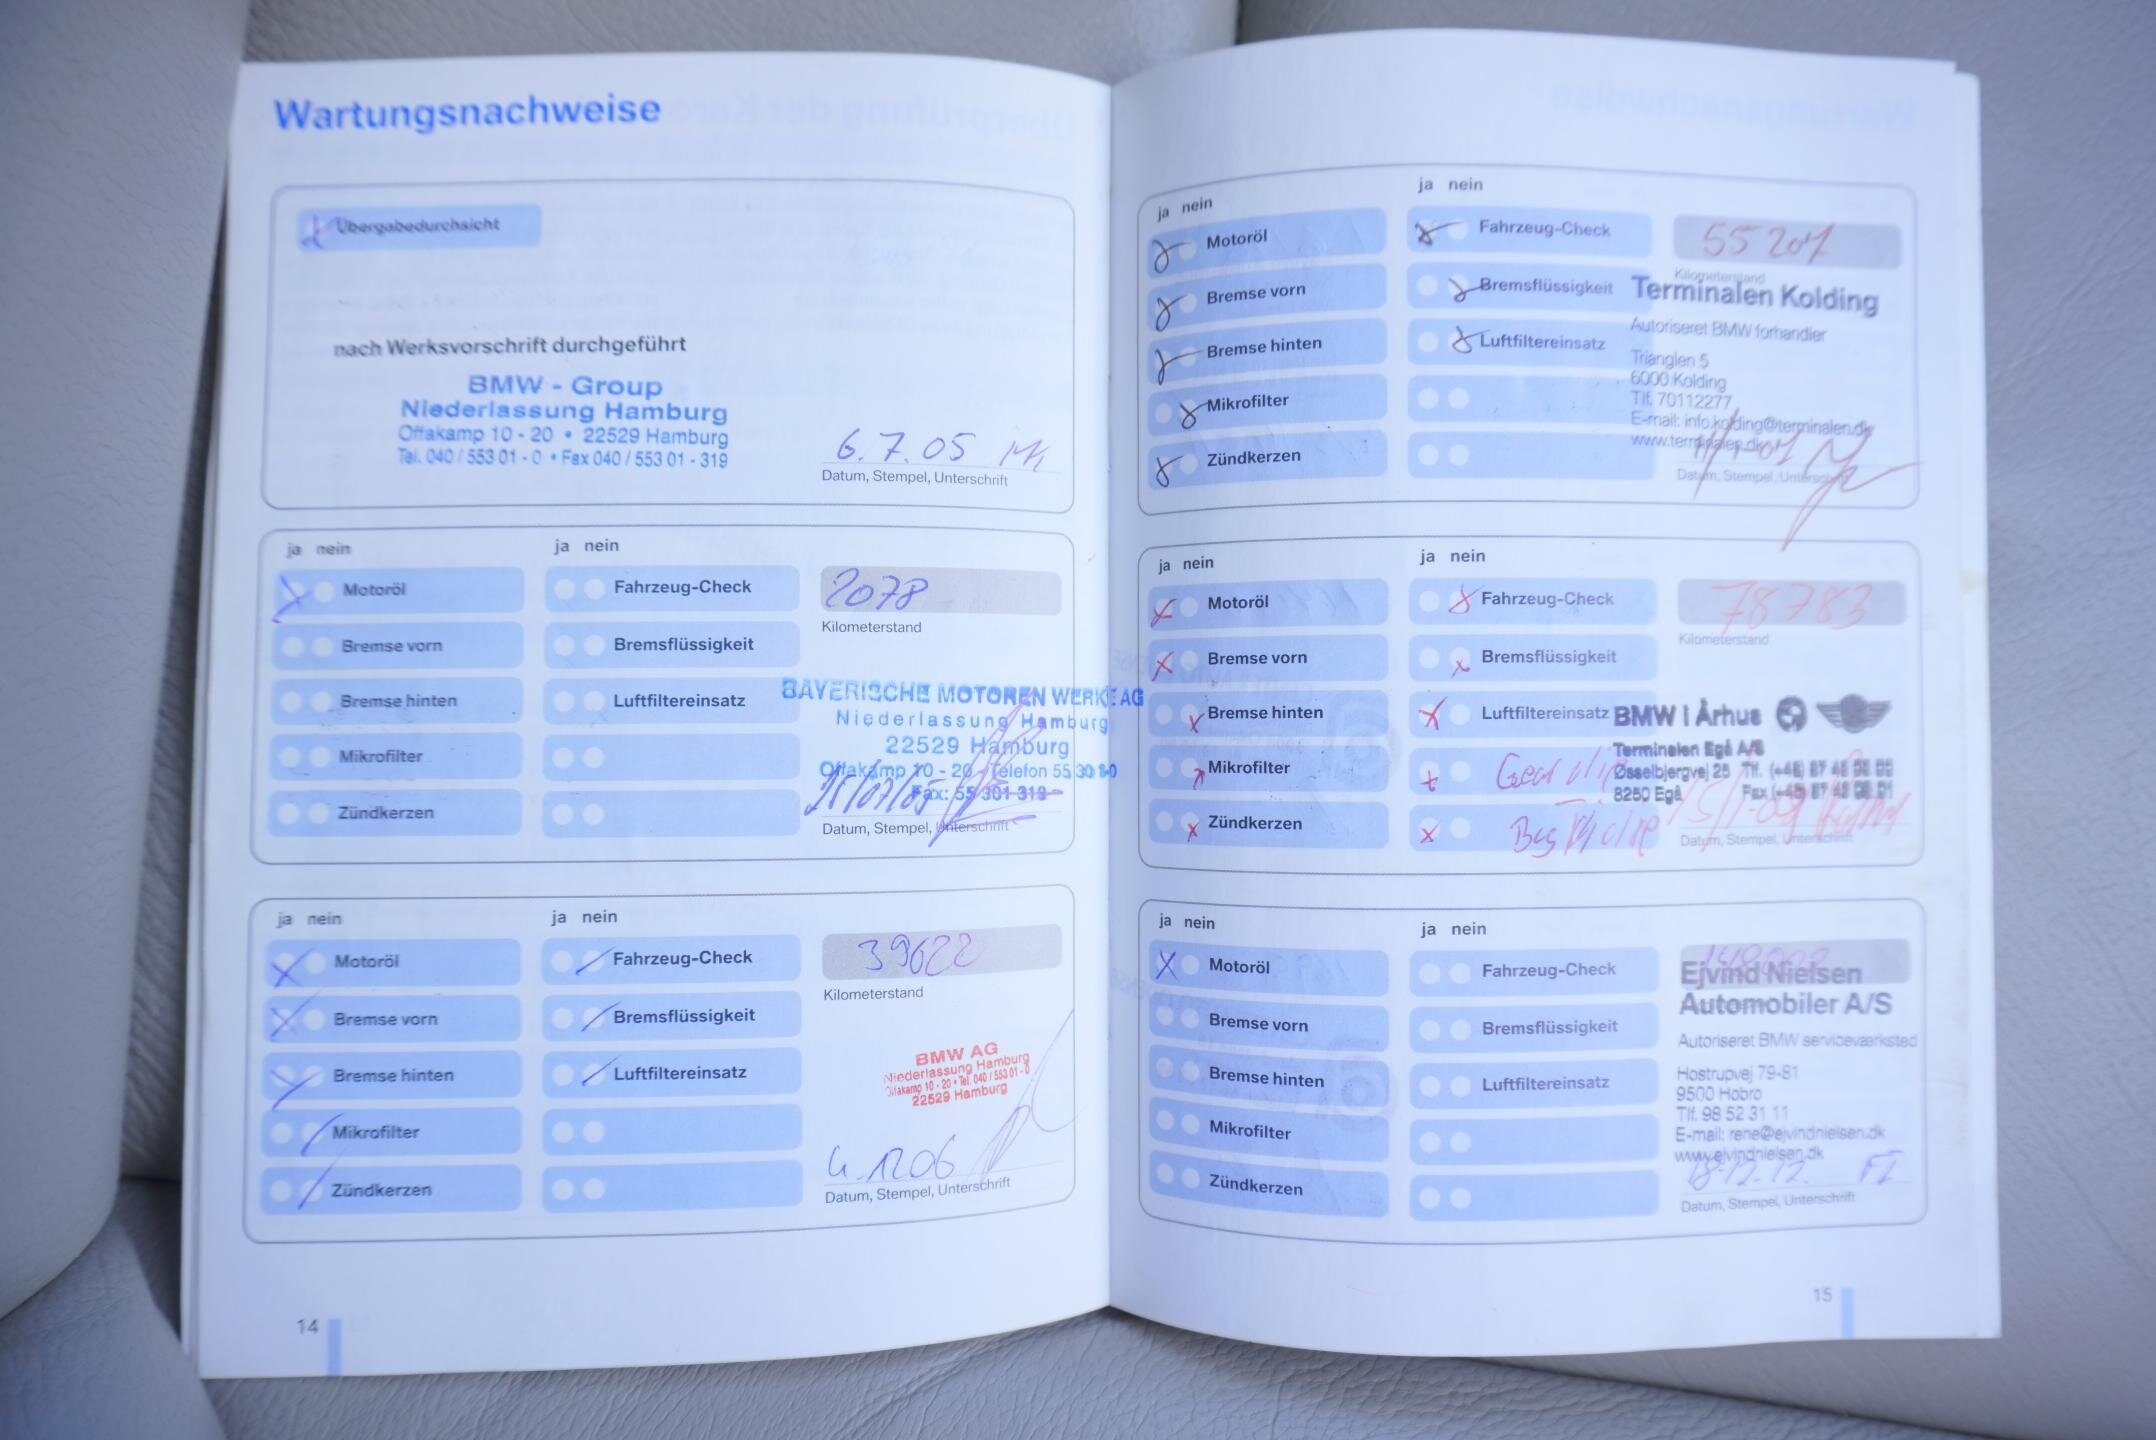 Wartungsnachweise
Übergabedurchsicht
nach Werksvorschrift durchgeführt
BMW - Group
Niederlassung Hamburg
Offakamp 10 - 20 • 22529 Hamburg
Tel. 040 / 553 01 - 0 • Fax 040 / 553 01 - 319
6.7.05
Datum, Stempel, Unterschrift
ja nein
ja nein
Motoröl
Fahrzeug-Check
2078
Kilometerstand
Bremse vorn
Bremsflüssigkeit
Bremse hinten
Luftfiltereinsatz
Mikrofilter
Zündkerzen
BAYERISCHE MOTOREN WERKE AG
Niederlassung Hamburg
22529 Hamburg
Offakamp 10 - 20 - Telefon 55 30 1-0
Fax: 55 301-319
Datum, Stempel, Unterschrift
ja nein
ja nein
Motoröl
Fahrzeug-Check
39622
Kilometerstand
Bremse vorn
Bremsflüssigkeit
Bremse hinten
Luftfiltereinsatz
Mikrofilter
Zündkerzen
BMW AG
Niederlassung Hamburg
Offakamp 10 - 20 • Tel. 040 / 553 01 - 0
22529 Hamburg
4.1206
Datum, Stempel, Unterschrift
14
ja nein
ja nein
Motoröl
Fahrzeug-Check
55207
Kilometerstand
Bremse vorn
Bremsflüssigkeit
Bremse hinten
Luftfiltereinsatz
Mikrofilter
Zündkerzen
Terminalen Kolding
Autoriseret BMW forhandler
Trianglen 5
6000 Kolding
Tlf. 70112277
E-mail: info.kolding@terminalen.dk
www.terminalen.dk
Datum, Stempel, Unterschrift
ja nein
ja nein
Motoröl
Fahrzeug-Check
78783
Kilometerstand
Bremse vorn
Bremsflüssigkeit
Bremse hinten
Luftfiltereinsatz
Mikrofilter
Zündkerzen
BMW i Århus
Terminalen Egå A/S
Øsselbjergvej 25 Tlf.
8250 Egå Fax
Datum, Stempel, Unterschrift
ja nein
ja nein
Motoröl
Fahrzeug-Check
Bremse vorn
Bremsflüssigkeit
Bremse hinten
Luftfiltereinsatz
Mikrofilter
Zündkerzen
Ejvind Nielsen
Automobiler A/S
Autoriseret BMW serviceværksted
Hostrupvej 79-81
9500 Hobro
Tlf. 98 52 31 11
E-mail: rene@ejvindnielsen.dk
www.ejvindnielsen.dk
18-12.12.
Datum, Stempel, Unterschrift
15